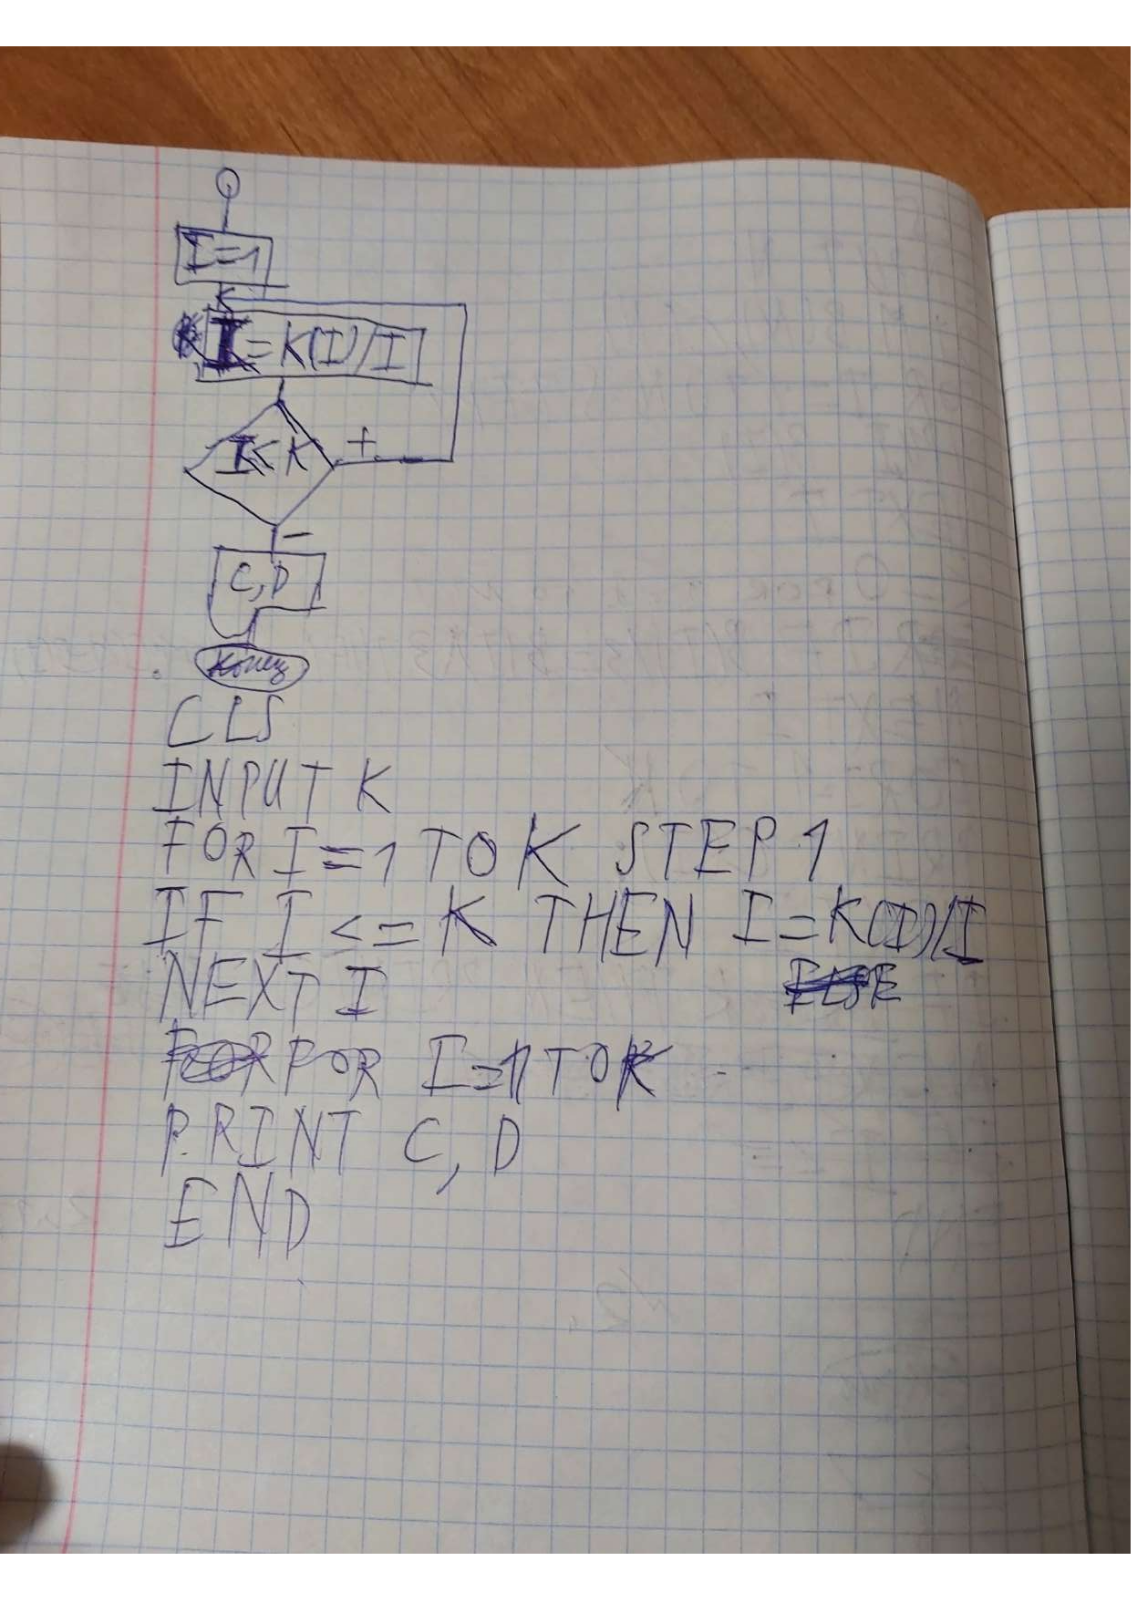 I=1
I=K(I)/I
I<K +
-
C,D
Конец
CLS
INPUT K
FOR I=1 TO K STEP 1
IF I <= K THEN I=K(I)/I
ELSE
NEXT I
FOR I=1 TO K
PRINT C, D
END